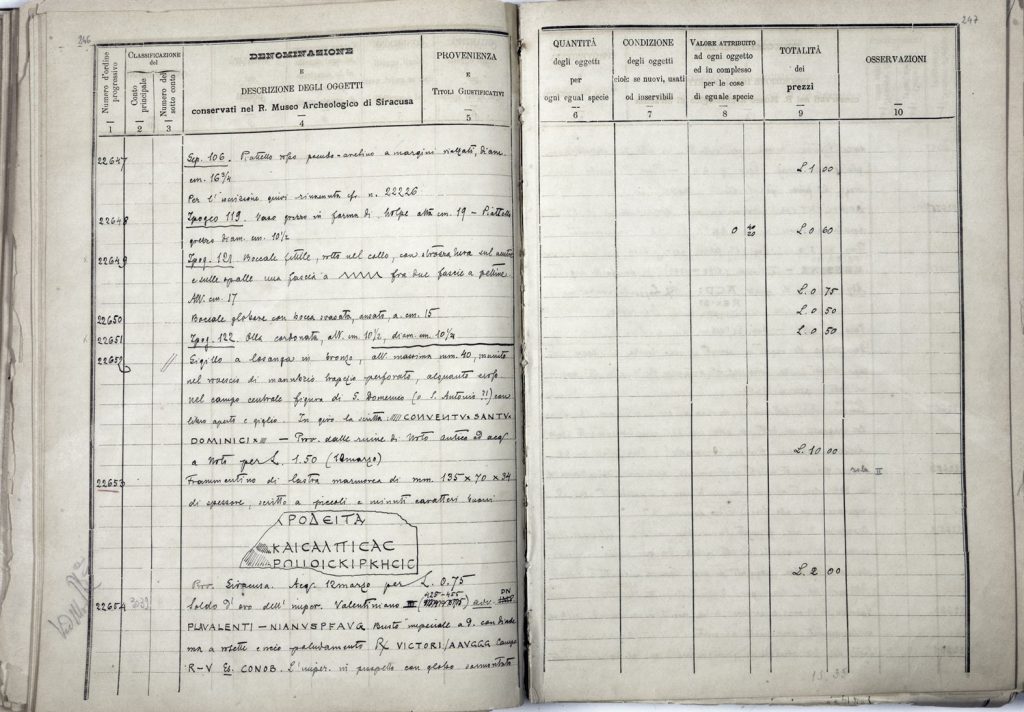 246
Numero d'ordine progressivo
CLASSIFICAZIONE del
Conto principale
Numero del sotto conto
DENOMINAZIONE
E
DESCRIZIONE DEGLI OGGETTI
conservati nel R. Museo Archeologico di Siracusa
PROVENIENZA
E
TITOLI GIUSTIFICATIVI
1 2 3 4 5
22647 Sep. 106. Piattello rosso pseudo-aretino a margini rialzati, diam.
cm. 16 3/4
Per l'iscrizione quivi rinvenuta cfr. n. 22226
22648 Ipogeo 119. Vaso grezzo in forma di alta cm. 19 – Piattello
grezzo diam. cm. 10 1/2
22649 Ipog. 121. Boccale fittile, rotto nel collo, con sul ventre
e sulle spalle una fascia a fra due fascie a pettine
Alt. cm. 17
22650 Boccale globare con bocca svasata, ansato, a. cm. 15
22651 Ipog. 122. Olla carbonata, alt. cm. 10 1/2, diam. cm. 10 1/4
22652 // Sigillo a losanga in bronzo, alt. massima mm. 40, munito
nel rovescio di manubrio trapezio perforato, alquanto
nel campo centrale figura di S. Domenico (o S. Antonio ?!) con
libro aperto e giglio. In giro la scritta: CONVENTV× SANTV×
DOMINICI× – Prov. dalle ruine di Noto antico ed acq.
a Noto per L. 1.50 (12 marzo)
22653 Frammentino di lastra marmorea di mm. 135 × 70 × 34
di spessore, scritto a piccoli e minuti caratteri buoni
ΡΟΔΕΙΤΑ
ΚΑΙCΑΛΠΙCΑC
ΡΟΙΙΟΙCΚΙΡΚΗCΙC
Prov. Siracusa. Acq. 12 marzo per L. 0.75
22654 3039 Soldo d'oro dell'imper. Valentiniano III (425-455) adv. DN
PLAVALENTI – NIANUSPFAVG Busto imperiale a d. con diade
ma a rosette e paludamento R/ VICTORI/AAVGGG Campo
R-V Es. CONOB. L'imper. in prospetto con globo sormontato
247
QUANTITÀ
degli oggetti
per
ogni egual specie
CONDIZIONE
degli oggetti
cioè: se nuovi, usati
od inservibili
VALORE ATTRIBUITO
ad ogni oggetto
ed in complesso
per le cose
di eguale specie
TOTALITÀ
dei
prezzi
OSSERVAZIONI
6 7 8 9 10
L. 1 00
0 40 20 L. 0 60
L. 0 75
L. 0 50
L. 0 50
L. 10 00
sala II
L. 2 00
15.35